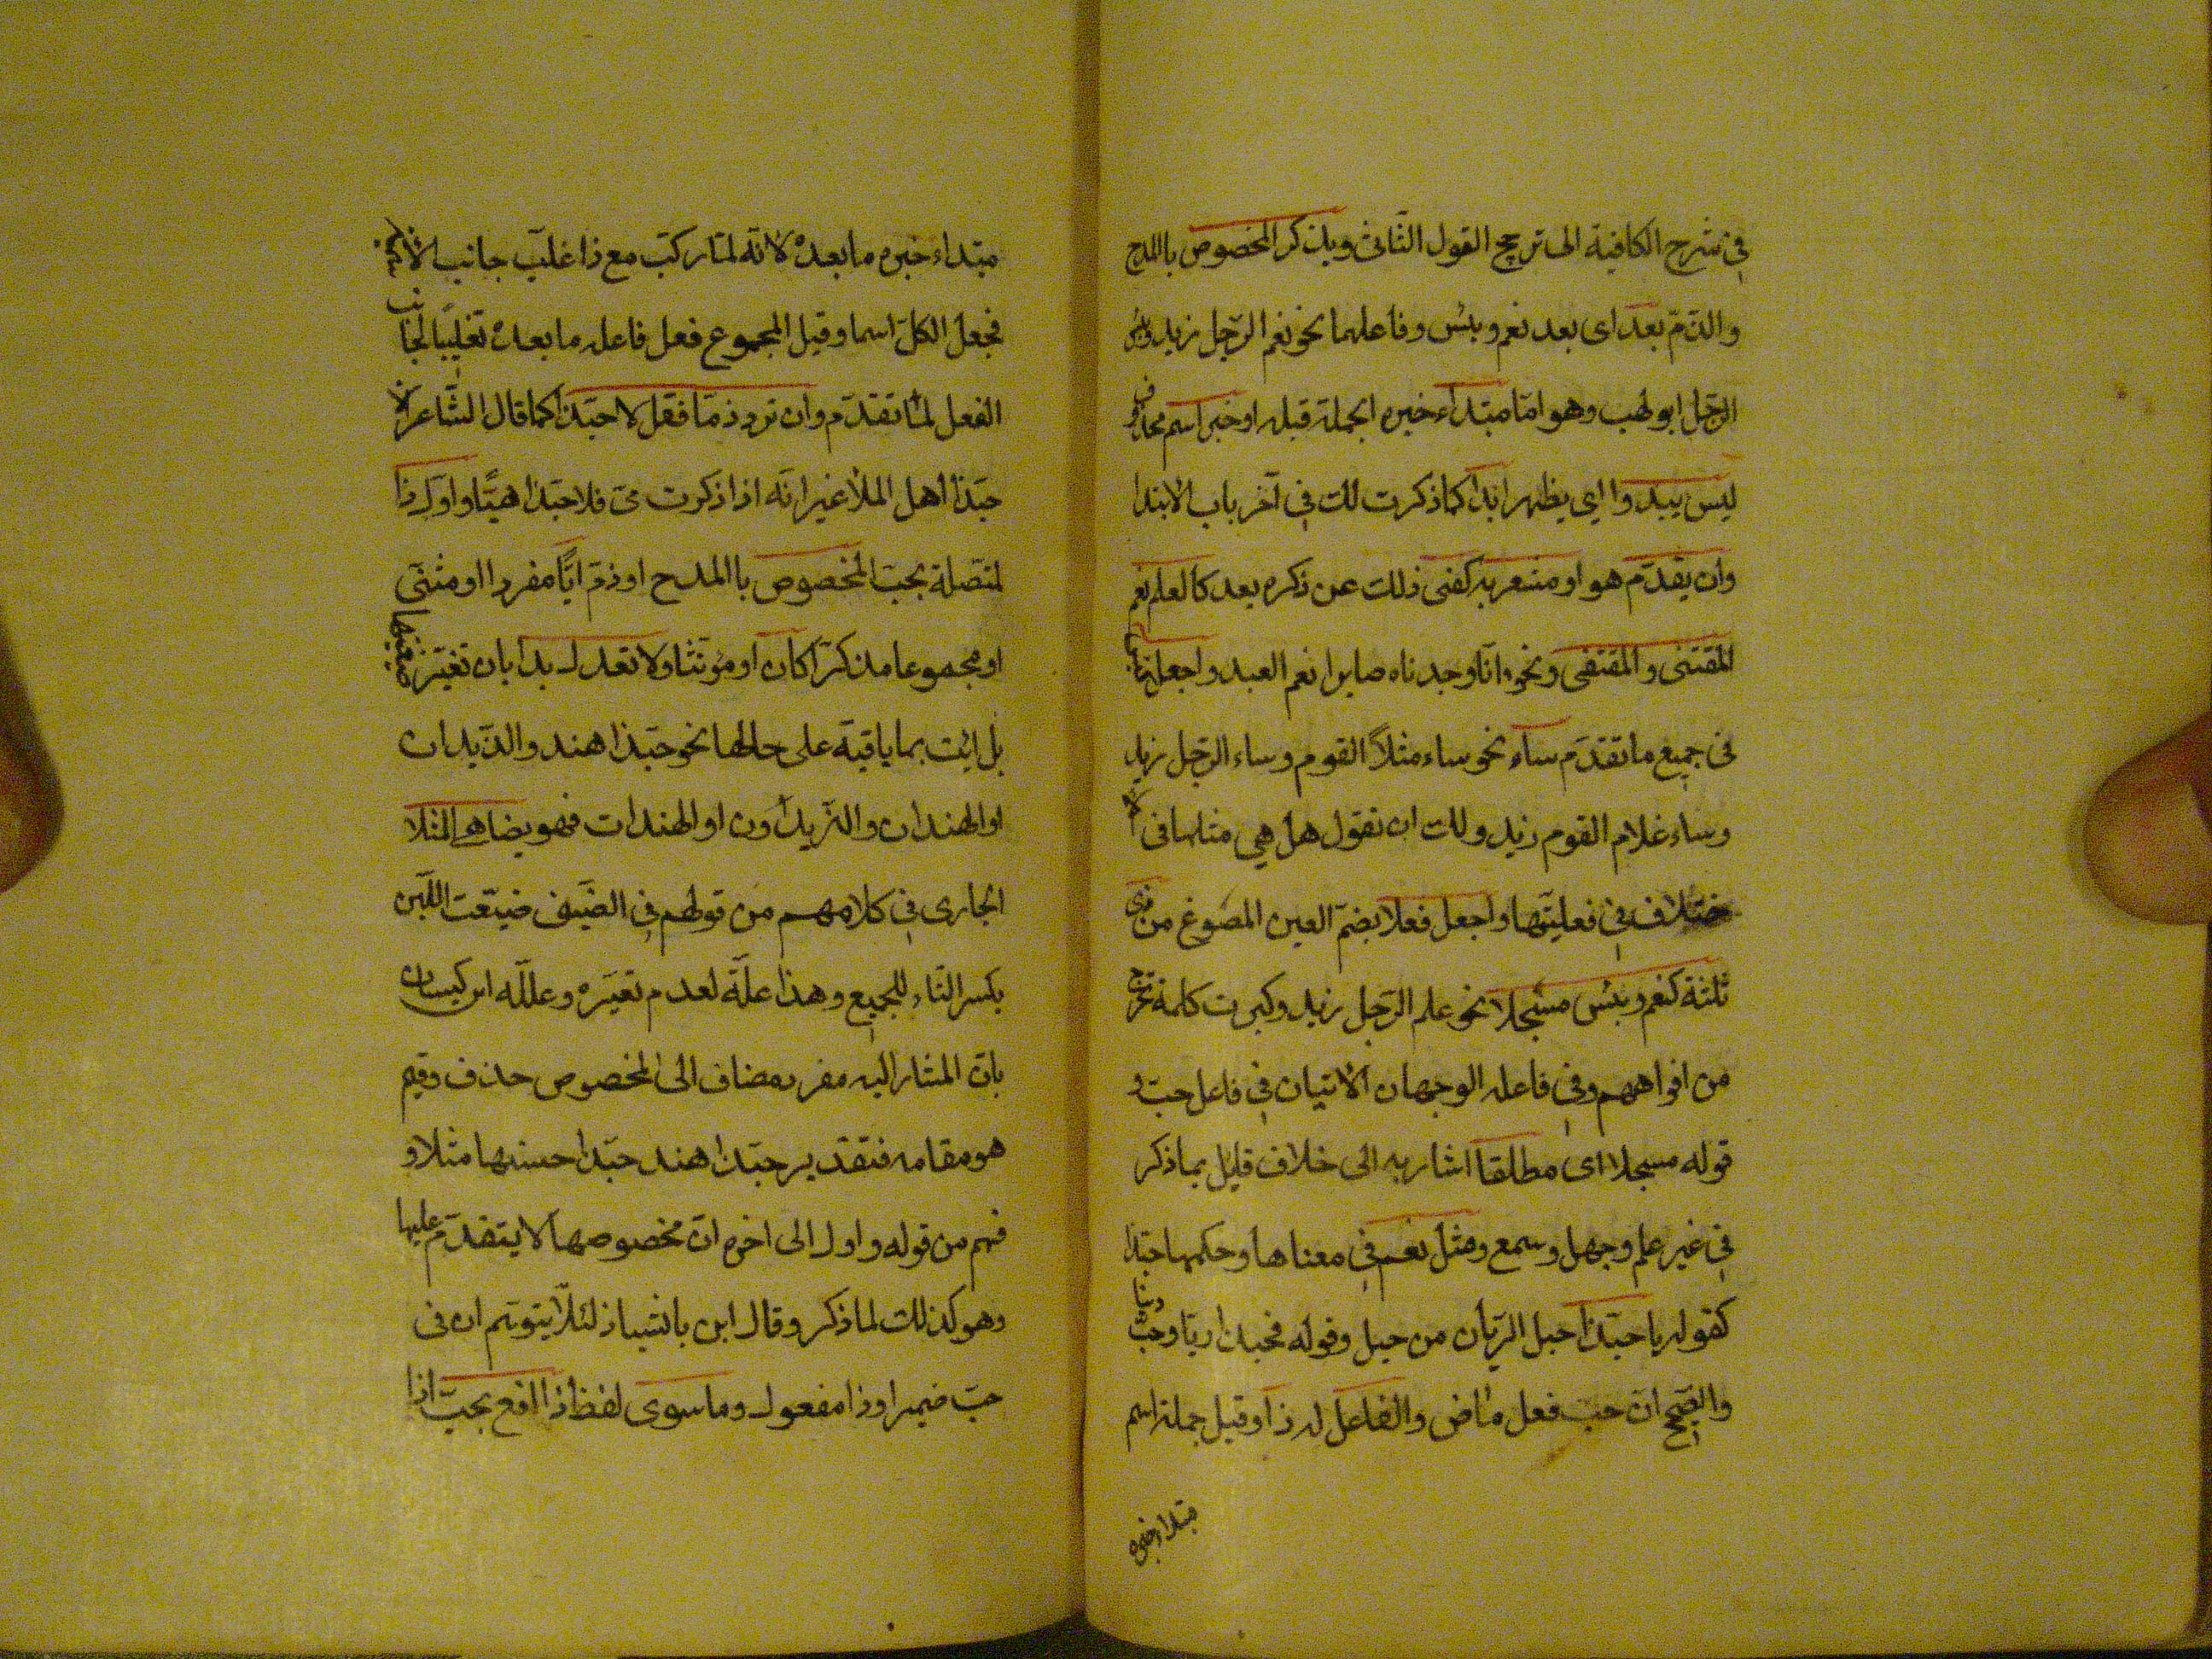 في شرح الكافية الى ترجيح القول الثّانى ويذكر المخصوص باالمدح
والذمّ بعد اى بعد نعم وبئس وفاعلهما نحو نعم الرّجل زيد وبئس
الرّجل ابو لهب وهو امّا مبتداء خبره الجملة قبله او خبر اسم محذوف
ليس يبدوا اي يظهر ابدا كما ذكرت لك في آخر باب الابتدا
وان يقدّم هو او مشعر به كفى ذلك عن ذكره بعد كالعلم نعم
المقتنى والمقتفى ونحو انّا وجدناه صابرا نعم العبد واجعل
فى جميع ما تقدّم ساء نحو ساء مثلاً القوم وساء الرّجل زيد
وساء غلام القوم زيد ولك ان تقول هل هي مثلها فى الا
ختلاف في فعليّتها واجعل فعلا بضمّ العين المصوغ من ذى
ثلثة كنعم وبئس مسجلا نحو علم الرّجل زيد وكبرت كلمة تخرج
من افواههم وفي فاعله الوجهان الاتيان في فاعل حبّ و
قوله مسجلا اى مطلقا اشار به الى خلاف قليل بما ذكر
في غير علم وجهل وسمع ومثل نعم في معناها وحكمها حبّذا
كقوله يا حبّذا جبل الريّان من جبل وقوله فحبذا ربّا وحبّ دينا
والصّحيح انّ حبّ فعل ماض والفاعل له ذا وقيل جملة اسم
مبتداء خبره
مبتداء خبره ما بعده لانّه لمّا ركّب مع ذا غلّب جانب الا
فجعل الكلّ اسما وقيل المجموع فعل فاعله ما بعده تغليبًا لجانب
الفعل لما تقدّم وان ترد ذمّا فقل لا حبّذا كما قال الشّاعر الا
حبّذا اهل الملا غير انّه اذا ذكرت مىّ فلا حبّذا هيّا واول ذا
لمتّصلة بحبّ المخصوص باالمدح او ذمّ ايًّا مفردا او مثنّى
او مجموعا مذكّرا كان او مؤنّثا ولا تعدل بذا بان تغيّر
بل ائت بما باقية على حالها نحو حبّذا هند والزّيدان
او الهندان والزّيداون او الهندات فهو يضاهي المثلا
الجارى في كلامهم من قولهم في الصّيف ضيّعت اللّبن
بكسر التّاء للجميع وهذا علّة لعدم تغيّره وعلّله ابن كيسان
بانّ المشار اليه مفرد مضاف الى المخصوص حذف وقيم
هو مقامه فتقدير حبّذا هند حبّذا حسنها مثلا و
فهم من قوله واول الى اخره انّ مخصوصها لا يتقدّم عليها
وهو كذلك لما ذكر وقال ابن بابشياذ لئلّا يتوهّم ان فى
حبّ ضميرا وذا مفعول وما سوى لفظ ذا ارفع بحبّ اذا